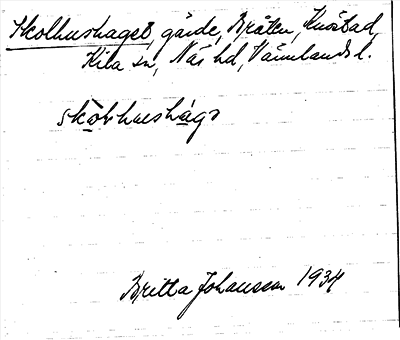 Skolhushaget, gärde, Bråten, Knöstad,
Kila sn, Näs hd, Värmlands l.
skolhushago
Britta Johansson 1934